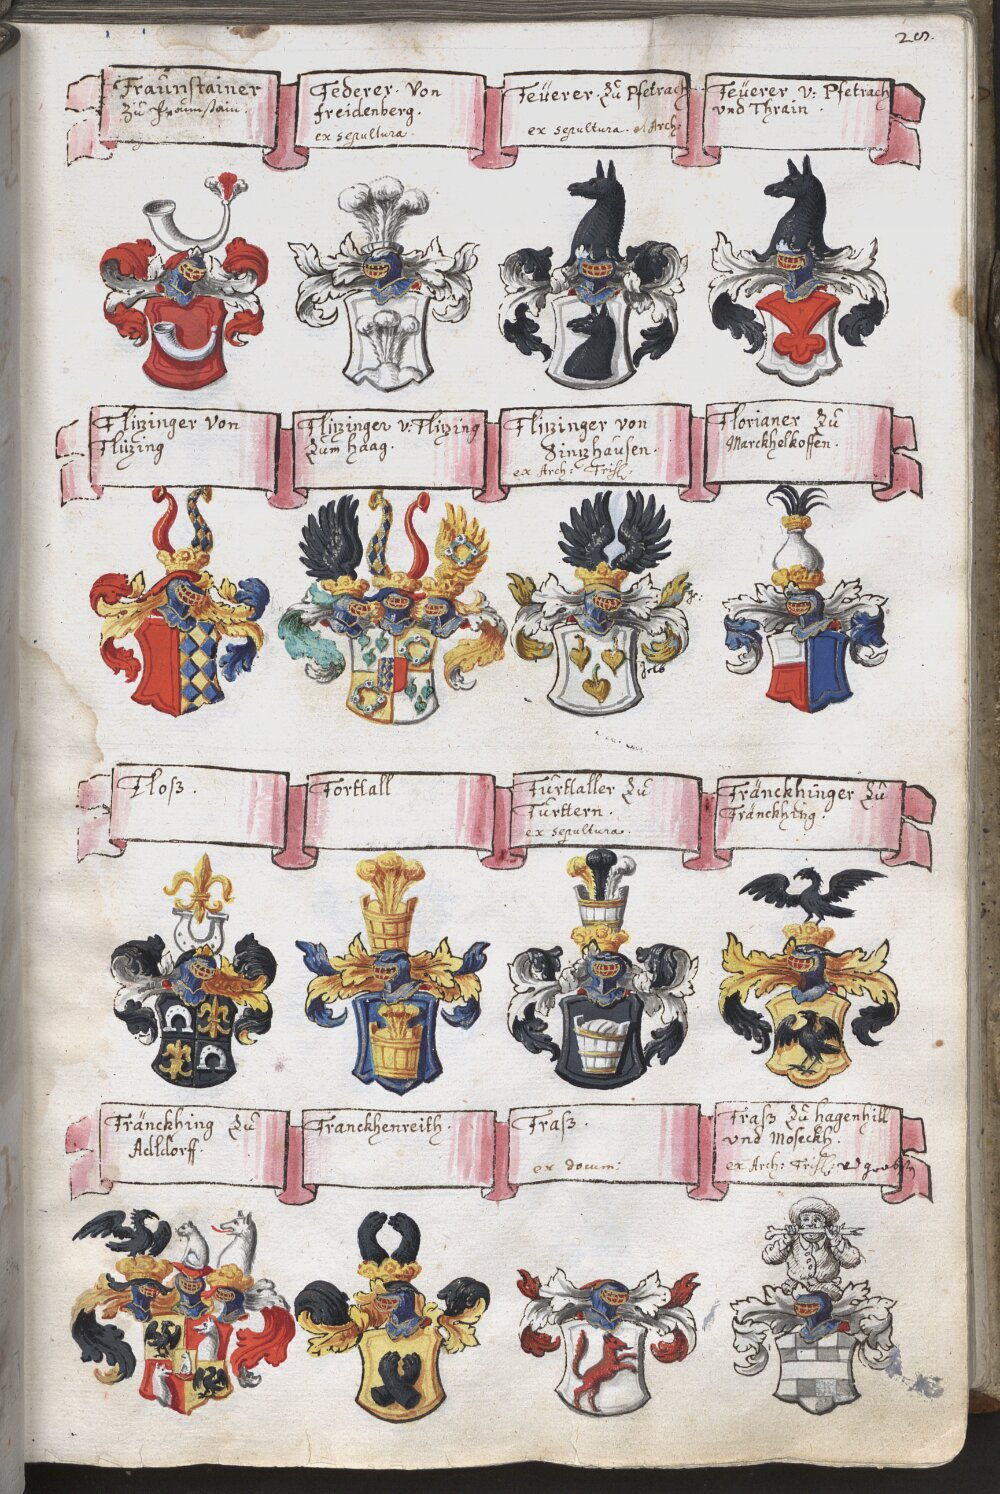 28.
Fraunstainer
Zů Fraunstain.
Federer. Von
freidenberg.
ex sepultura.
Feüerer. Zů Pfetrach
ex sepultura. et Arch:
Feüerer v: Pfetrach
vnd Thrain.
Flitzinger Von
Flitzing
Flitzinger v: Flitzing
Zům haag.
Flitzinger von
Sintzhausen.
ex Arch: Frisl:
Florianer Zů
Marckhelkoffen.
ge:
gelb
Floß.
Forttall
Fůrttaller Zů
Fůrttern.
ex sepultura.
Fränckhinger Zů
Fränckhing.
Fränckhing Zů
Adldorff.
Franckhenreith.
Fraß.
ex docum:
Fraß Zů hagenhill
vnd Moseckh.
ex Arch: Frisl: